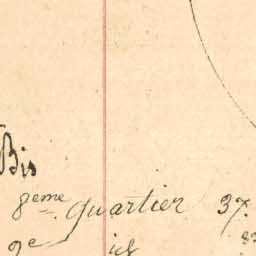 Bis
8eme quartier 37.
9e id